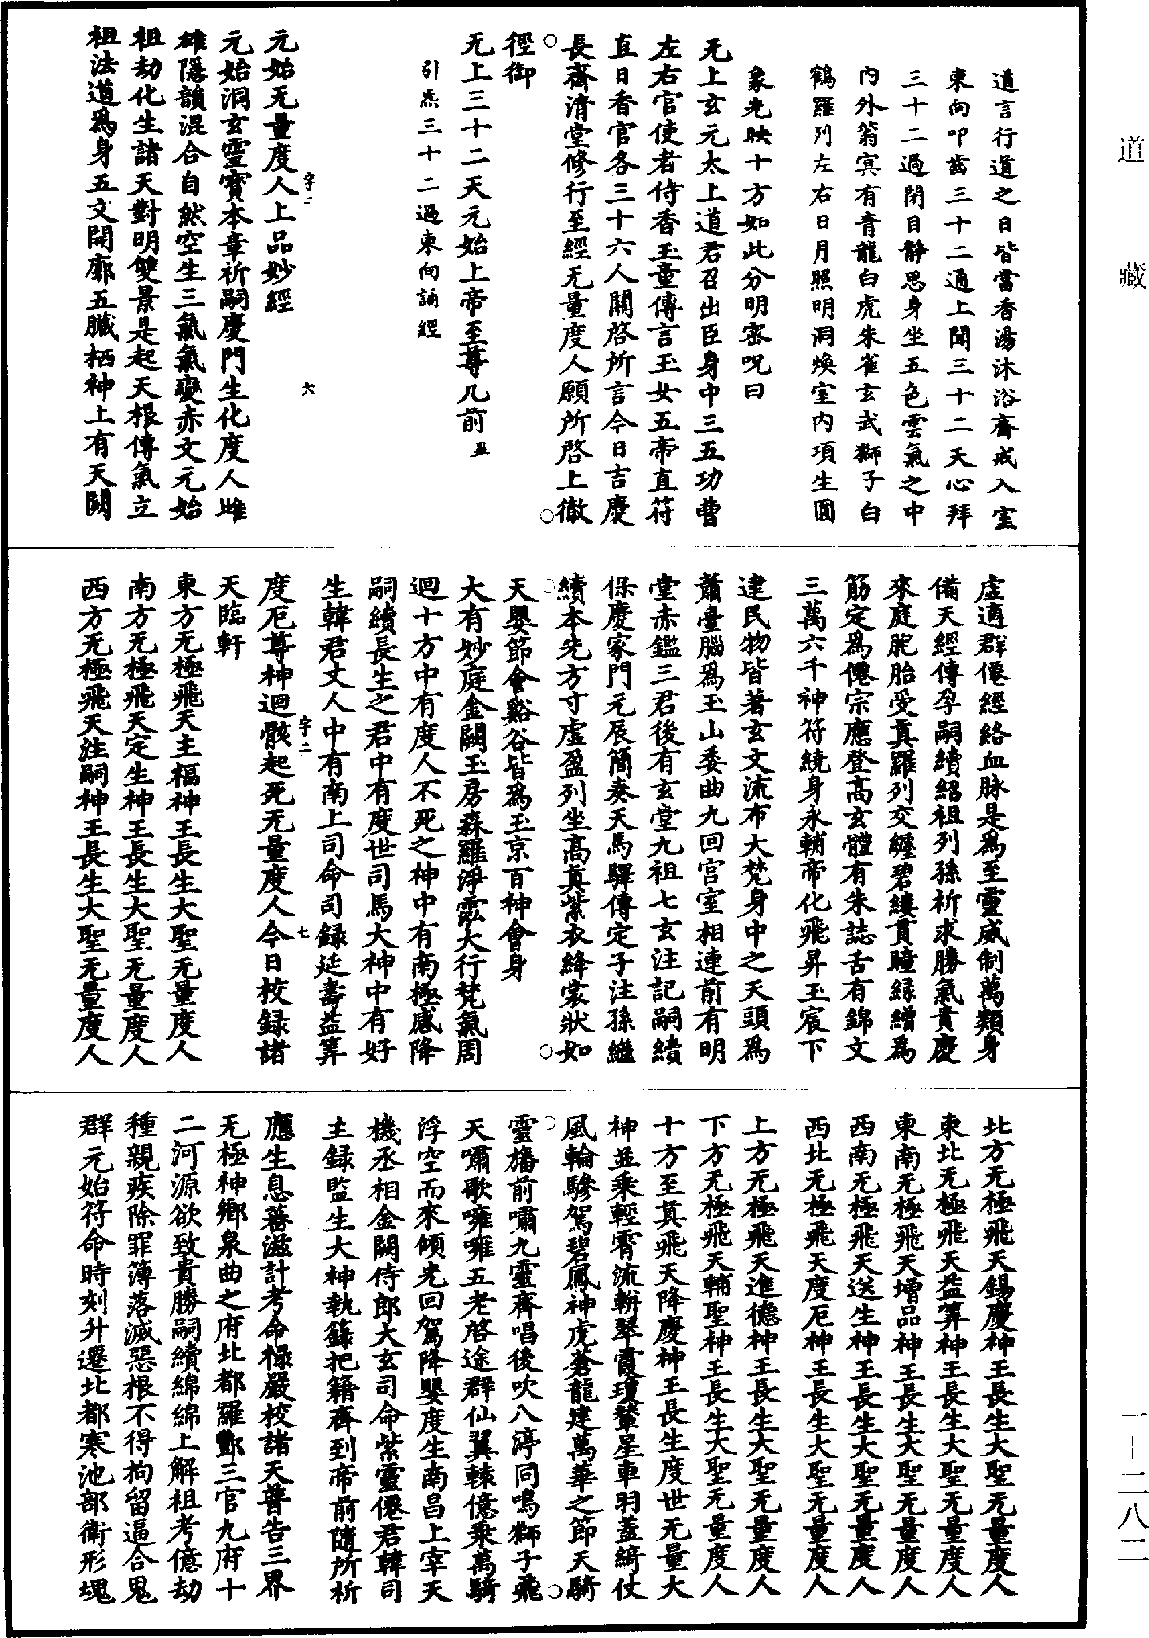 道藏
道言行道之日皆當香湯沐浴齋戒入室
東向叩齒三十二通上聞三十二天心拜
三十二過閉目靜思身坐五色雲氣之中
內外蓊冥有青龍白虎朱雀玄武獅子白
鶴羅列左右日月照明洞煥室內項生圓
象光映十方如此分明密呪曰
无上玄元太上道君召出臣身中三五功曹
左右官使者侍香玉童傳言玉女五帝直符
直日香官各三十六人關啓所言今日吉慶
長齋清堂修行至經无量度人願所啓上徹
徑御
无上三十二天元始上帝至尊几前
引炁三十二過東向誦經
元始无量度人上品妙經
字二 六
元始洞玄靈寶本章祈嗣慶門生化度人雌
雄隱韻混合自然空生三氣氣變赤文元始
祖劫化生諸天對明雙景是起天根傳氣立
祖法道爲身五文開廓五臟栖神上有天闕
虛通群僊經絡血脉是爲至靈威制萬類身
備天經傳孕嗣續紹祖列孫祈求勝氣貴慶
來庭胞胎受真羅列交纏碧縷貫瞳綠繒爲
筋定爲僊宗應登高玄體有朱誌舌有錦文
三萬六千神符繞身永輔帝化飛昇玉宸下
逮民物皆著玄文流布大梵身中之天頭爲
蕭臺腦爲玉山委曲九回宫室相連前有明
堂赤鑑三君後有玄堂九祖七玄注記嗣續
保慶家門元辰簡奏天馬驛傳定子注孫繼
續本先方寸虛盈列坐高真紫衣絳裳狀如
天嬰節會谿谷皆爲玉京百神會身
大有妙庭金闕玉房森羅淨泓大行梵氣周
迴十方中有度人不死之神中有南極感降
嗣續長生之君中有度世司馬大神中有好
生韓君丈人中有南上司命司録延壽益筭
度厄尊神迴骸起死无量度人今日校録諸
天臨軒
字二 七
東方无極飛天主福神王長生大聖无量度人
南方无極飛天定生神王長生大聖无量度人
西方无極飛天注嗣神王長生大聖无量度人
北方无極飛天錫慶神王長生大聖无量度人
東北无極飛天益筭神王長生大聖无量度人
東南无極飛天增品神王長生大聖无量度人
西南无極飛天送生神王長生大聖无量度人
西北无極飛天度厄神王長生大聖无量度人
上方无極飛天進德神王長生大聖无量度人
下方无極飛天輔聖神王長生大聖无量度人
十方至真飛天降慶神王長生度世无量大
神並乘輕霄流軿翠霞瓊輦星車羽蓋綺仗
風輪驂駕碧鳳神虎蒼龍建萬華之節天騎
靈旛前嘯九靈齊唱後吹八渟同鳴獅子飛
天嘯歌嗈嗈五老啓途群仙翼轅億乘萬騎
浮空而來傾光回駕降嬰度生南昌上宰天
機丞相金闕侍郎大玄司命紫靈僊君韓司
主録監生大神執籙把籍齊到帝前隨所祈
應生息蕃滋計考命禄嚴校諸天普告三界
无極神鄉泉曲之府北都羅酆三官九府十
二河源欲致貴勝嗣續綿綿上解祖考億劫
種親疾除罪簿落滅惡根不得拘留逼合鬼
群元始符命時刻升遷北都寒池部衛形魂
一—二八二